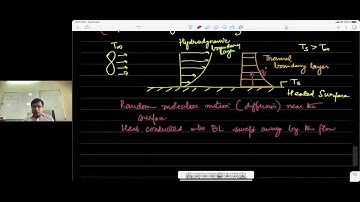 T∞
Hydrodynamic
boundary
layer
Ts > T∞
Thermal
boundary layer
Ts
Heated Surface
Random molecular motion (diffusion) near the
surface
Heat conducted into BL swept away by the flow